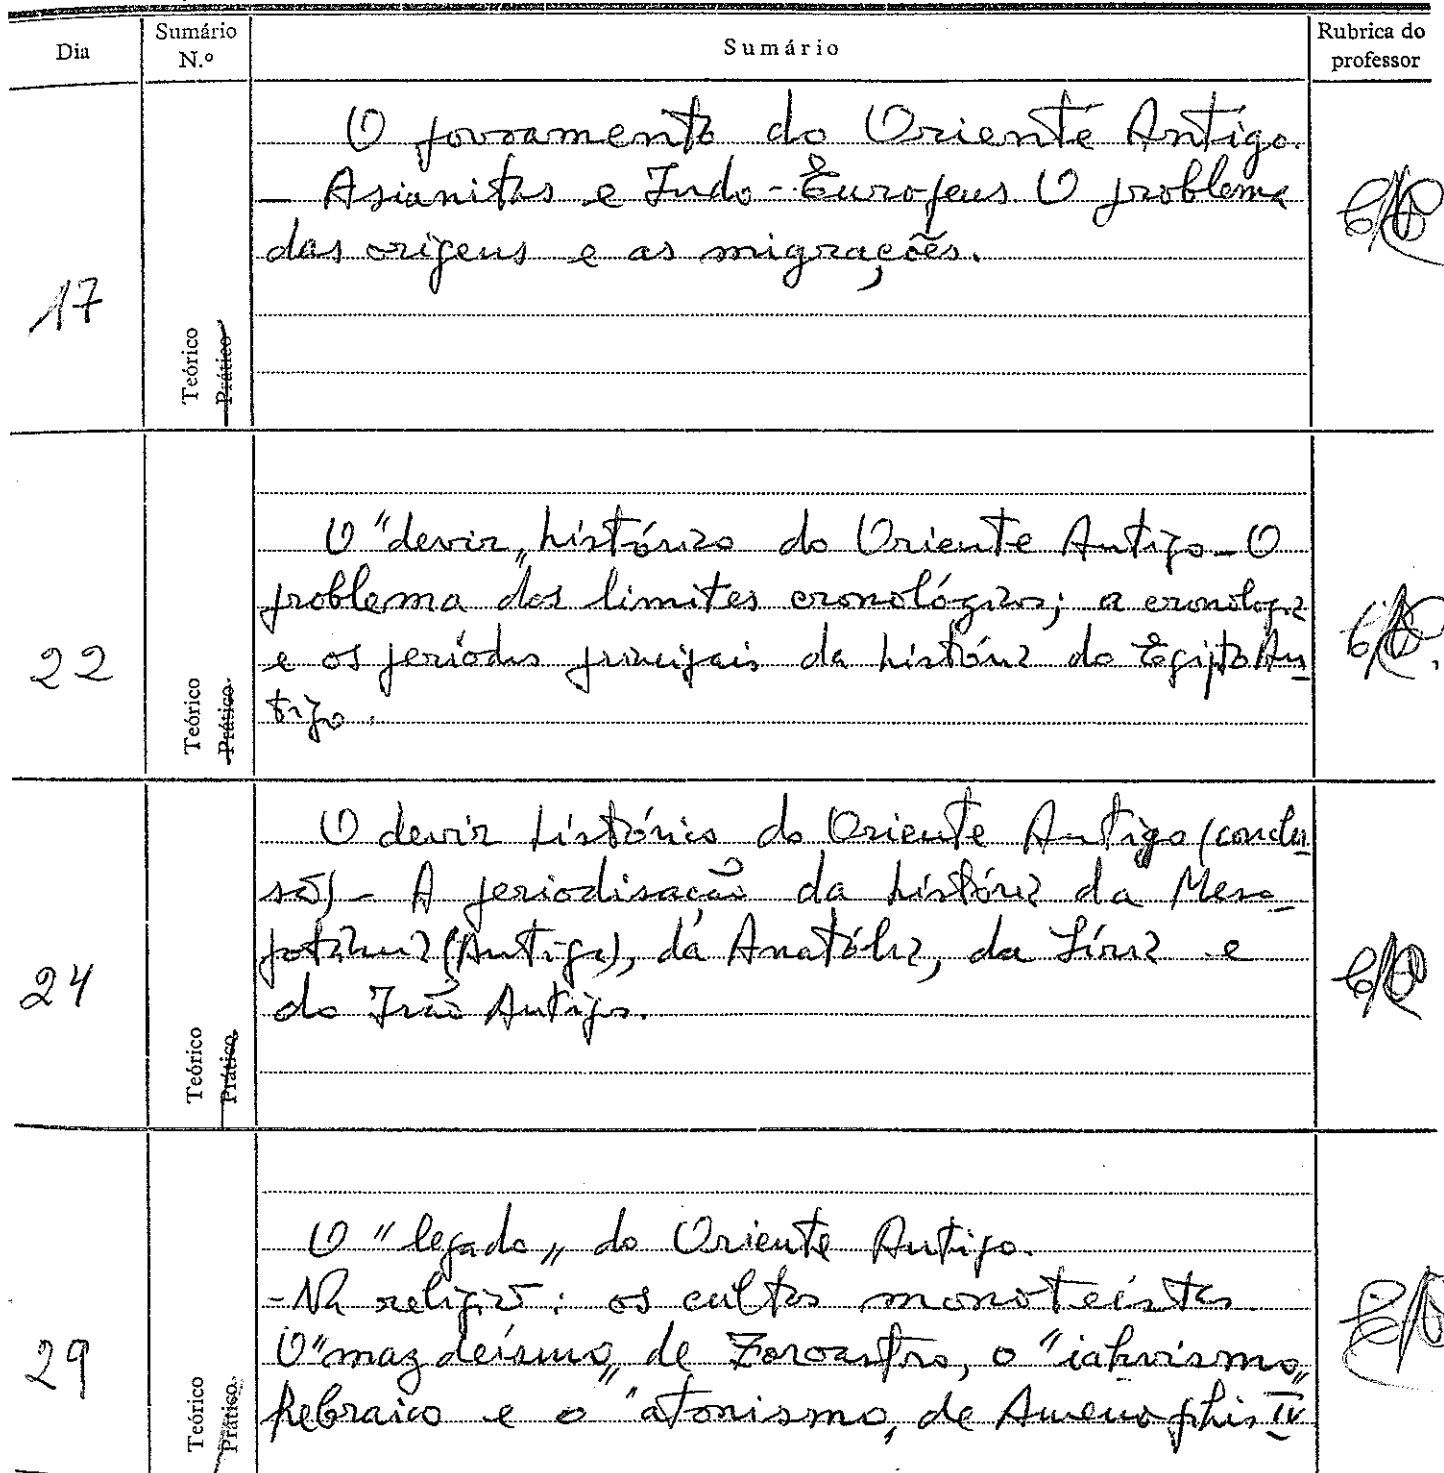 Dia
Sumário
N.º
Sumário
Rubrica do
professor
17
Teórico
Prático
O povoamento do Oriente Antigo.
– Asianitas e Indo-Europeus. O problema
das origens e as migrações.
22
Teórico
Prático
O "devir" histórico do Oriente Antigo – O
problema dos limites cronológicos; a cronologia
e os períodos principais da história do Egipto An-
tigo.
24
Teórico
Prático
O devir histórico do Oriente Antigo (conclu
são) – A periodisação da história da Meso-
potâmia (Antiga), da Anatólia, da Síria e
do Irão Antigo.
29
Teórico
Prático
O "legado" do Oriente Antigo.
- Na religião: os cultos monoteístas
O "mazdeísmo" de Zoroastro, o "iahvismo"
hebraico e o "atonismo" de Amenophis IV